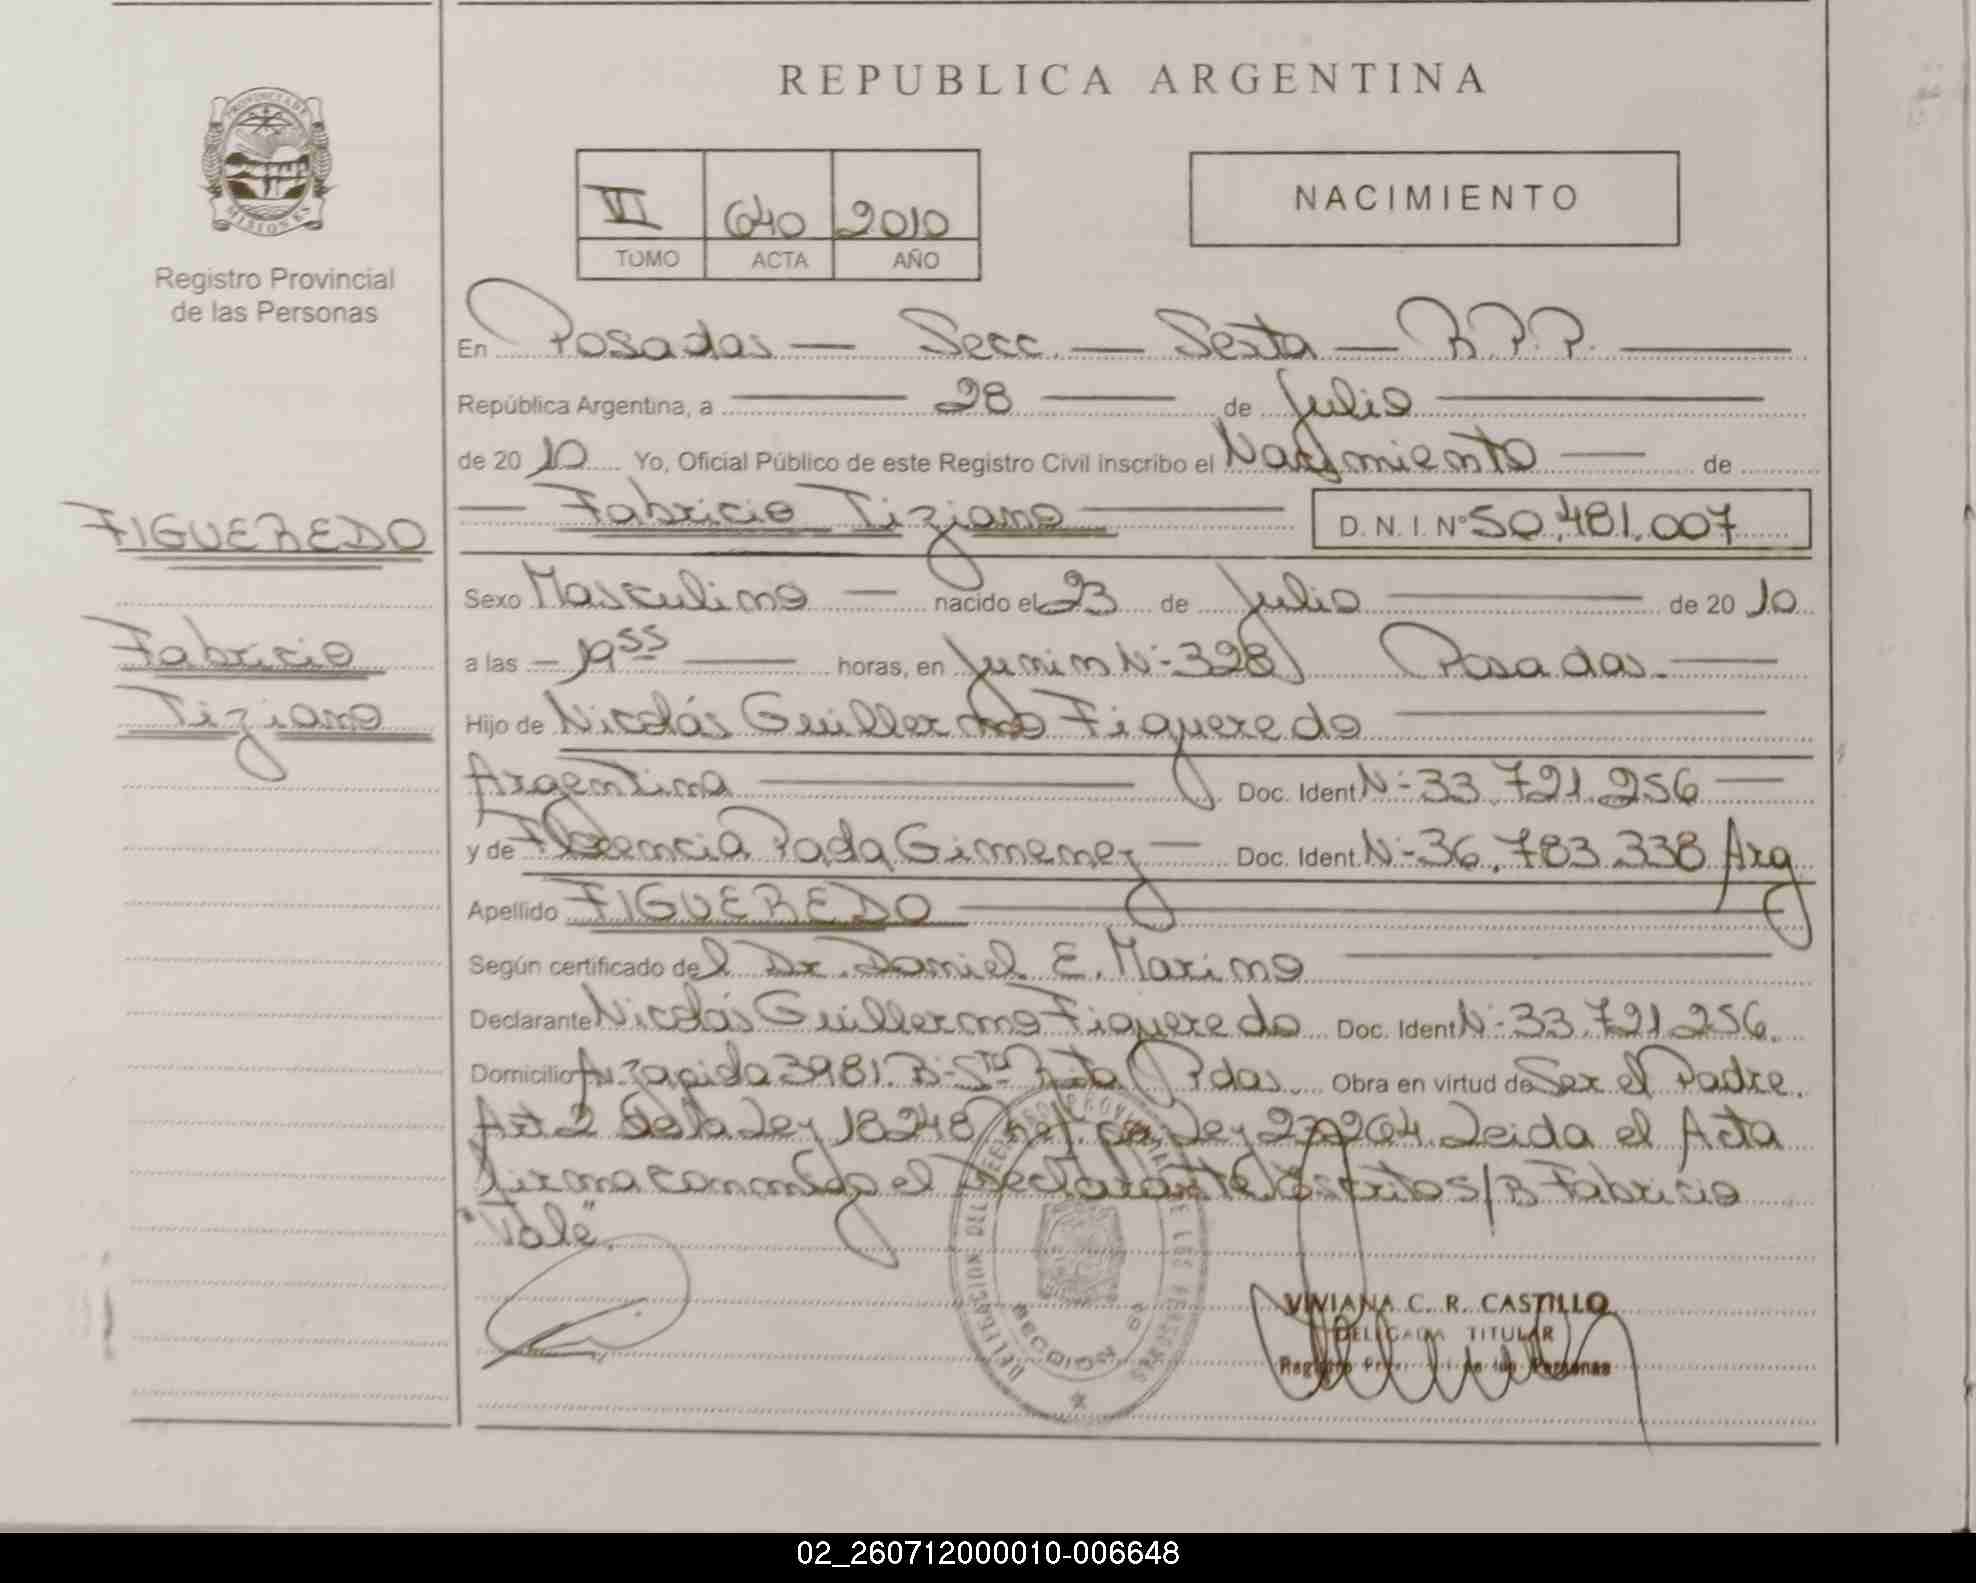 REPUBLICA ARGENTINA
PROVINCIA DE
MISIONES
Registro Provincial
de las Personas
VI 640 2010
TOMO ACTA AÑO
NACIMIENTO
En Posadas — Secc. — Sexta — R.P.P. —
República Argentina, a — 28 — de Julio —
de 2010 Yo, Oficial Público de este Registro Civil inscribo el Nacimiento — de
— Fabricio Tiziano — D. N. I. Nº 50.481.007
FIGUEREDO
Fabricio
Tiziano
Sexo Masculino — nacido el 23 de Julio — de 2010
a las — 19 55 — horas, en Junin Nº 328 Posadas. —
Hijo de Nicolás Guillermo Figueredo —
Argentina — Doc. Ident Nº 33.721.256 —
y de Florencia Gimenez — Doc. Ident. Nº 36.783.338 Arg
Apellido FIGUEREDO —
Según certificado del Dr. Daniel E. Marino —
Declarante Nicolás Guillermo Figueredo Doc. Ident Nº 33.721.256.
Domicilio Av. Zapiola 3981. Bº Sta Rita Pdas. Obra en virtud de Ser el Padre.
Art 2 de la Ley 18248 Ley Leida el Acta
firma conmigo el Declarante S/B Fabricio
"Vale".
DELEGACION DEL REGISTRO PROVINCIAL DE LAS PERSONAS
VIVIANA C. R. CASTILLO
DELEGADA TITULAR
Registro de las Personas
02_260712000010-006648